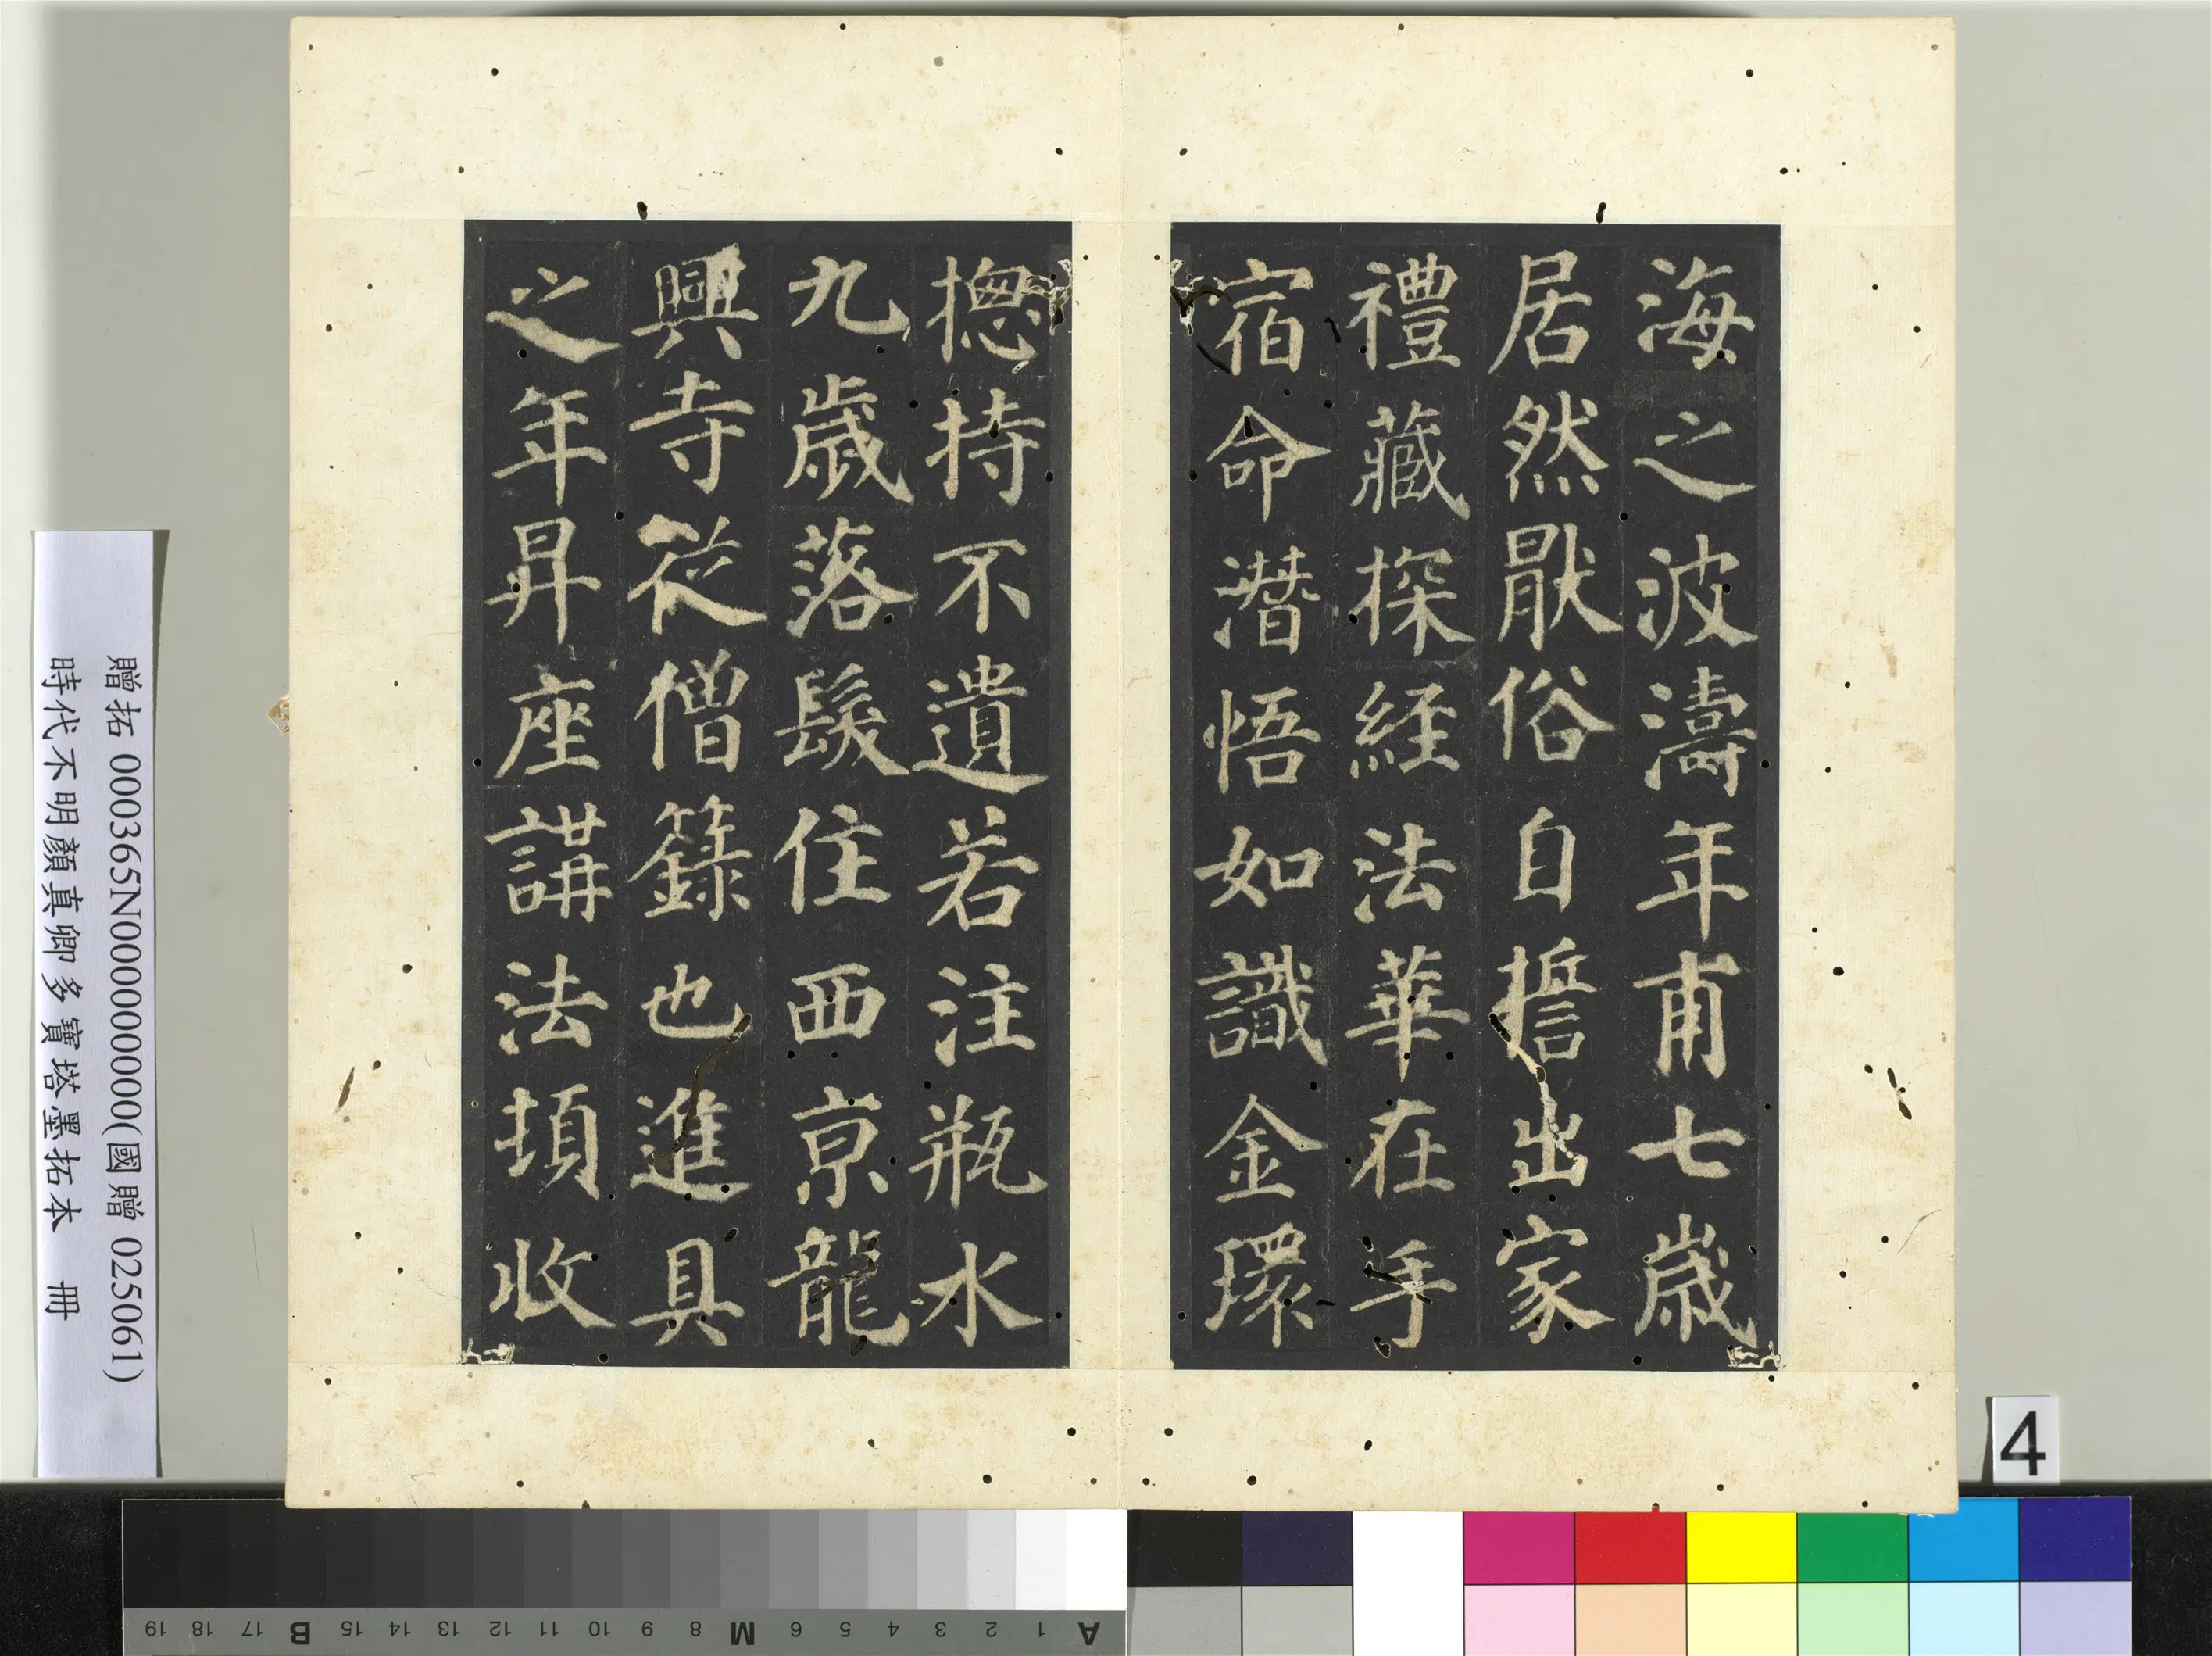 海之波濤年甫七歲
居然厭俗自誓出家
禮藏探經法華在手
宿命潛悟如識金環
揔持不遺若注瓶水
九歲落髮住西京龍
興寺從僧籙也進具
之年昇座講法頃收
贈拓 000365N000000000(國贈 025061)
時代不明顏真卿多寶塔墨拓本 冊
4
A 1 2 3 4 5 6 M 8 9 10 11 12 13 14 15 B 17 18 19